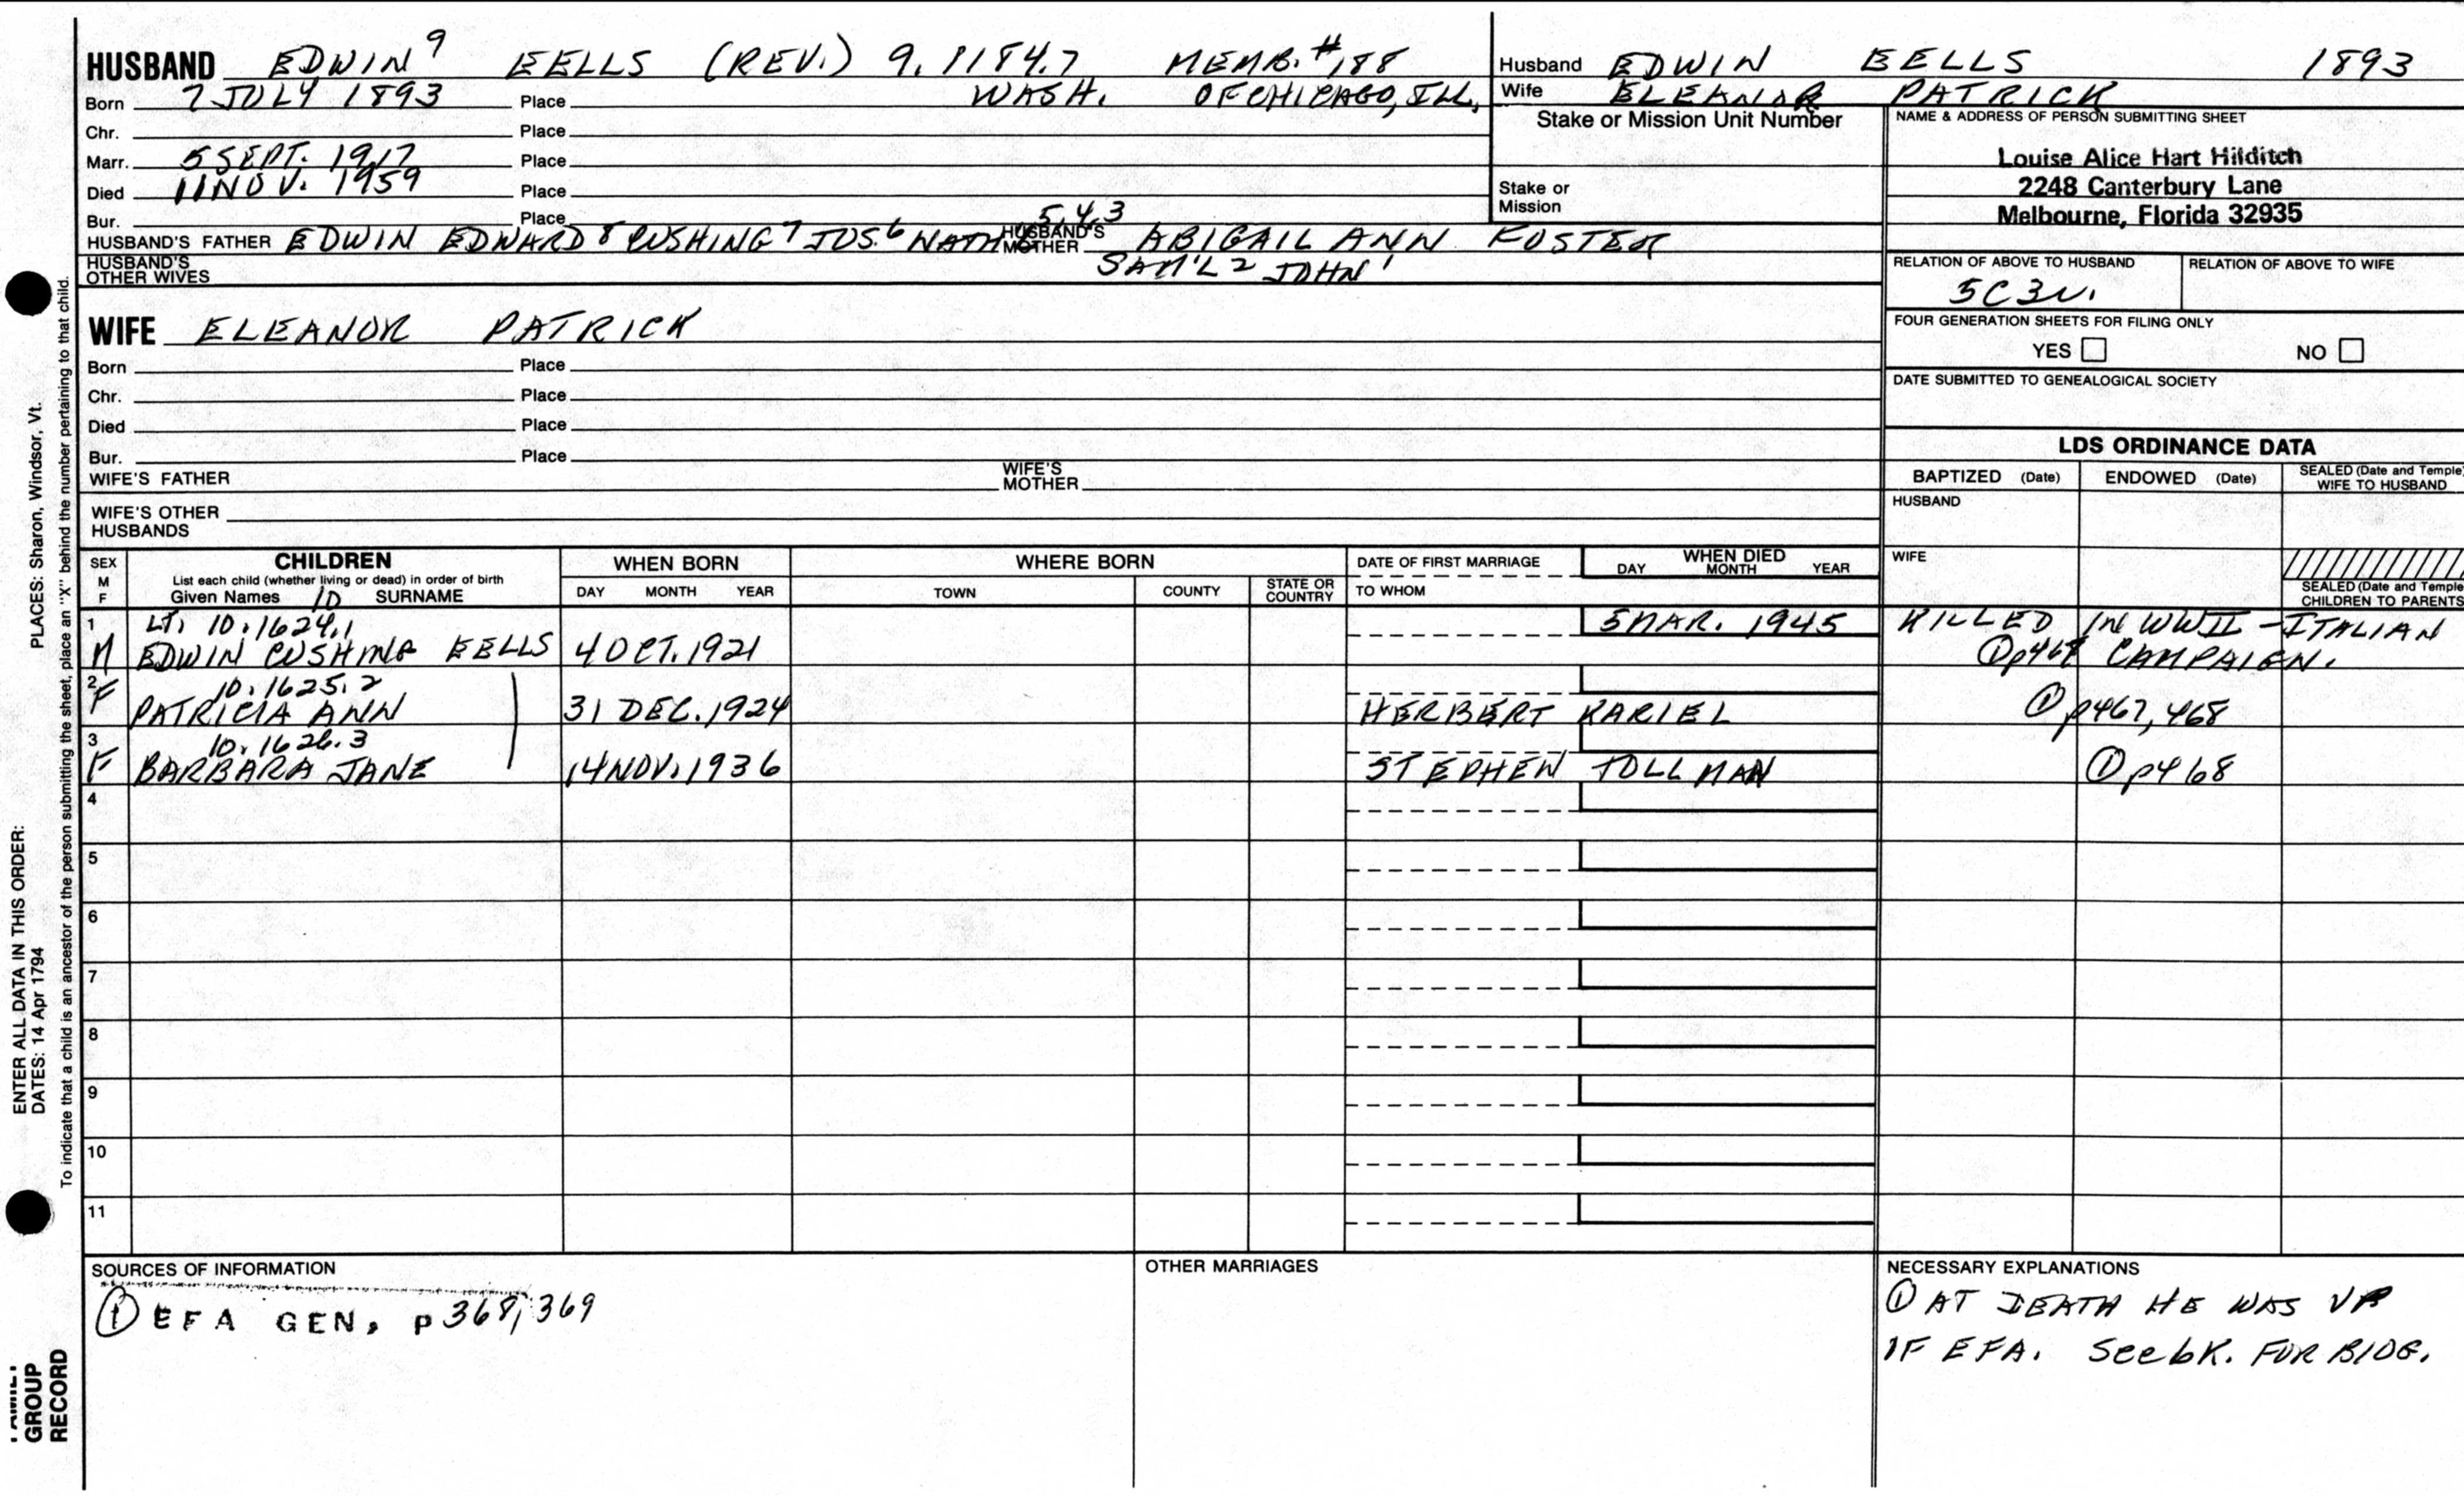 HUSBAND EDWIN 9 EELLS (REV.) 9.1184.7 MEMB. #188
Born 7 JULY 1893 Place WASH. OF CHICAGO, ILL,
Chr. Place
Marr. 5 SEPT. 1917 Place
Died 11 NOV. 1959 Place
Bur. Place
HUSBAND'S FATHER EDWIN EDWARD 8 CUSHING 7 JOS. 6 NATH 5,4,3 HUSBAND'S MOTHER ABIGAIL ANN FOSTER
HUSBAND'S OTHER WIVES SAM'L 2 JOHN 1
Husband EDWIN EELLS 1893
Wife ELEANOR PATRICK
Stake or Mission Unit Number
Stake or Mission
NAME & ADDRESS OF PERSON SUBMITTING SHEET
Louise Alice Hart Hilditch
2248 Canterbury Lane
Melbourne, Florida 32935
RELATION OF ABOVE TO HUSBAND RELATION OF ABOVE TO WIFE
5C3
FOUR GENERATION SHEETS FOR FILING ONLY
YES NO
DATE SUBMITTED TO GENEALOGICAL SOCIETY
WIFE ELEANOR PATRICK
Born Place
Chr. Place
Died Place
Bur. Place
WIFE'S FATHER WIFE'S MOTHER
WIFE'S OTHER HUSBANDS
LDS ORDINANCE DATA
BAPTIZED (Date) ENDOWED (Date) SEALED (Date and Temple) WIFE TO HUSBAND
HUSBAND
WIFE
SEALED (Date and Temple) CHILDREN TO PARENTS
SEX M F
CHILDREN
List each child (whether living or dead) in order of birth
Given Names 10 SURNAME
WHEN BORN
DAY MONTH YEAR
WHERE BORN
TOWN COUNTY STATE OR COUNTRY
DATE OF FIRST MARRIAGE
TO WHOM
WHEN DIED
DAY MONTH YEAR
1 LT. 10.1624.1 5 MAR. 1945 KILLED IN WWII - ITALIAN
M EDWIN CUSHING EELLS 4 OCT. 1921 ① p467 CAMPAIGN.
2 10.1625.2
F PATRICIA ANN 31 DEC. 1924 HERBERT KARIEL ① p467, 468
3 10.1626.3
F BARBARA JANE 14 NOV. 1936 STEPHEN TOLLMAN ① p468
4
5
6
7
8
9
10
11
SOURCES OF INFORMATION
① EFA GEN, p 368, 369
OTHER MARRIAGES
NECESSARY EXPLANATIONS
① AT DEATH HE WAS VP
IF EFA. See bK. FOR BIOG.
ENTER ALL DATA IN THIS ORDER:
DATES: 14 Apr 1794 PLACES: Sharon, Windsor, Vt.
To indicate that a child is an ancestor of the person submitting the sheet, place an "X" behind the number pertaining to that child.
GROUP
RECORD